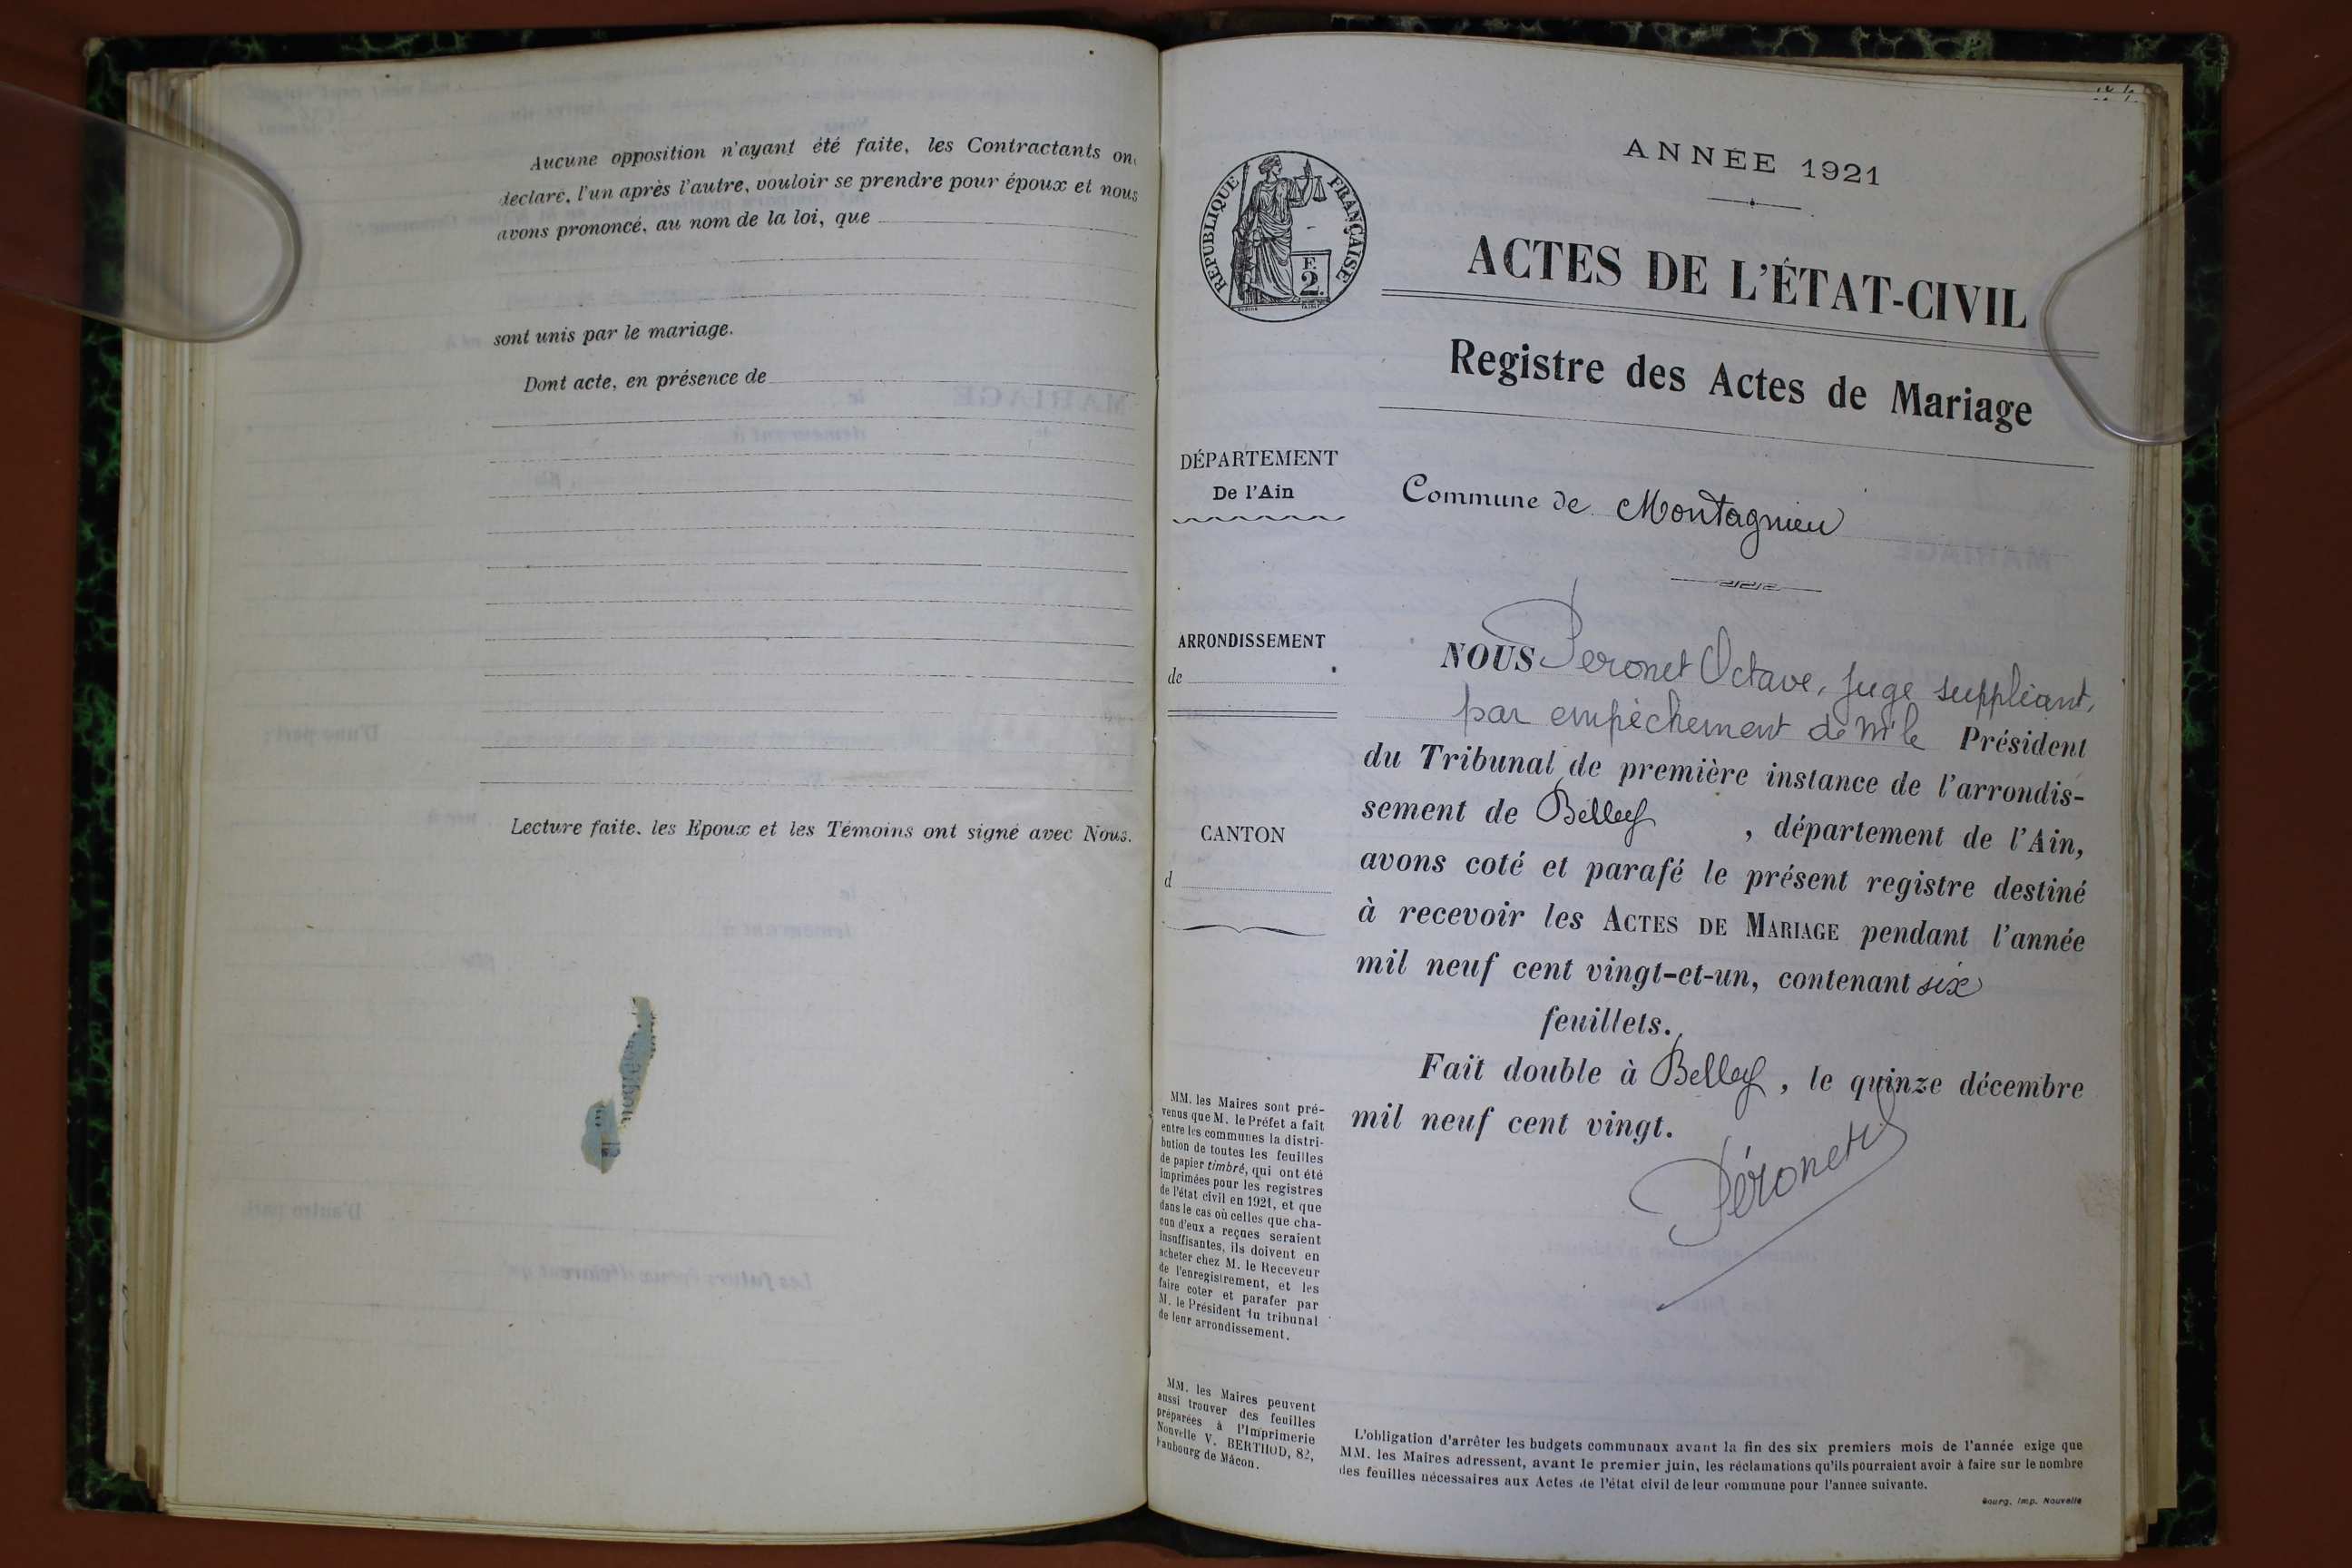 Aucune opposition n'ayant été faite, les Contractants on
declaré, l'un après l'autre, vouloir se prendre pour époux et nous
avons prononcé, au nom de la loi, que
sont unis par le mariage.
Dont acte, en présence de
Lecture faite, les Epoux et les Témoins ont signé avec Nous.
ANNÉE 1921
REPUBLIQUE FRANÇAISE
F.
2.
ACTES DE L'ÉTAT-CIVIL
Registre des Actes de Mariage
DÉPARTEMENT
De l'Ain
Commune de Montagnieu
ARRONDISSEMENT
de
CANTON
d
NOUS Peronet Octave, Juge suppléant,
par empêchement de Mr le Président
du Tribunal de première instance de l'arrondis-
sement de Belley, département de l'Ain,
avons coté et parafé le présent registre destiné
à recevoir les ACTES DE MARIAGE pendant l'année
mil neuf cent vingt-et-un, contenant six
feuillets.
Fait double à Belley, le quinze décembre
mil neuf cent vingt.
Péronet
MM. les Maires sont pré-
venus que M. le Préfet a fait
entre les communes la distri-
bution de toutes les feuilles
de papier timbré, qui ont été
imprimées pour les registres
de l'état civil en 1921, et que
dans le cas où celles que cha-
cun d'eux a reçues seraient
insuffisantes, ils doivent en
acheter chez M. le Receveur
de l'enregistrement, et les
faire coter et parafer par
M. le Président du tribunal
de leur arrondissement.
MM. les Maires peuvent
aussi trouver des feuilles
préparées à l'Imprimerie
Nouvelle V. BERTHOD, 82,
Faubourg de Mâcon.
L'obligation d'arrêter les budgets communaux avant la fin des six premiers mois de l'année exige que
MM. les Maires adressent, avant le premier juin, les réclamations qu'ils pourraient avoir à faire sur le nombre
des feuilles nécessaires aux Actes de l'état civil de leur commune pour l'année suivante.
Bourg, Imp. Nouvelle